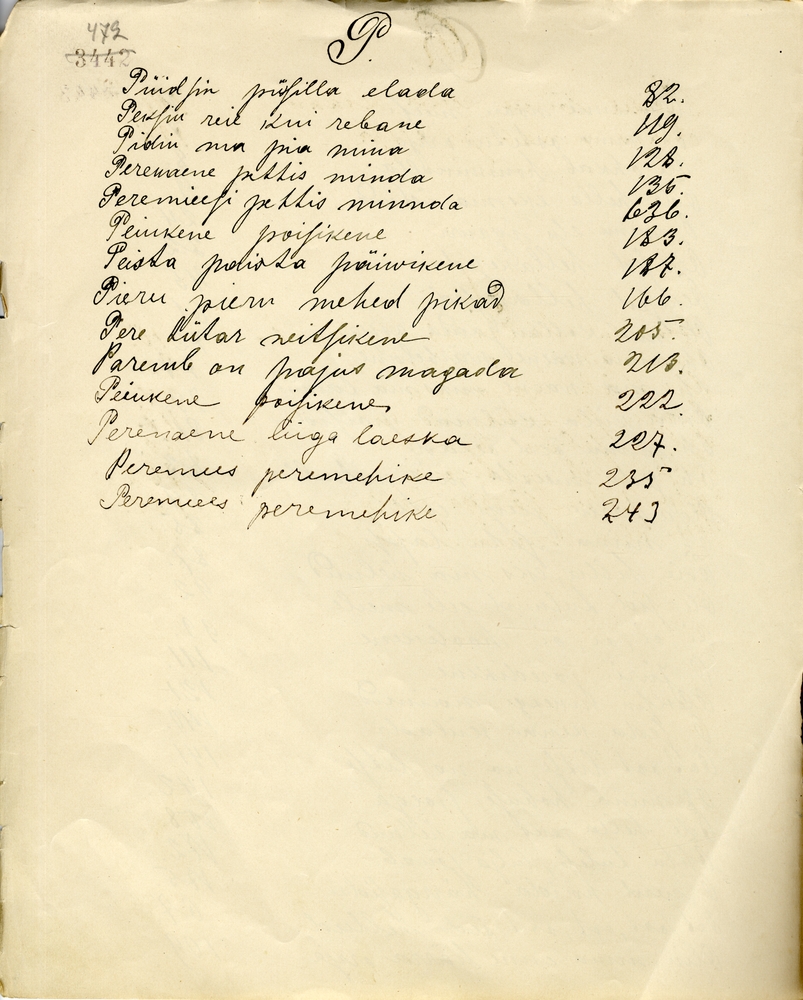 473
3442
P.
Püidsin püsilla elada 82.
Peksin reie kui rebane 119.
Pidin ma pia mina 128.
Perenaene pettis minda 135.
Peremiesi pettis minnda 636.
Peiukene poisikene 183.
Peista paista päiwikene 187.
Pieru pieru mehed pikad 166.
Pere tütar neitsikene 205.
Paremb on pajus magada 213.
Peiukene poisikene 222.
Perenaene liiga laeska 227.
Peremees peremehike 235
Peremees peremehike 243